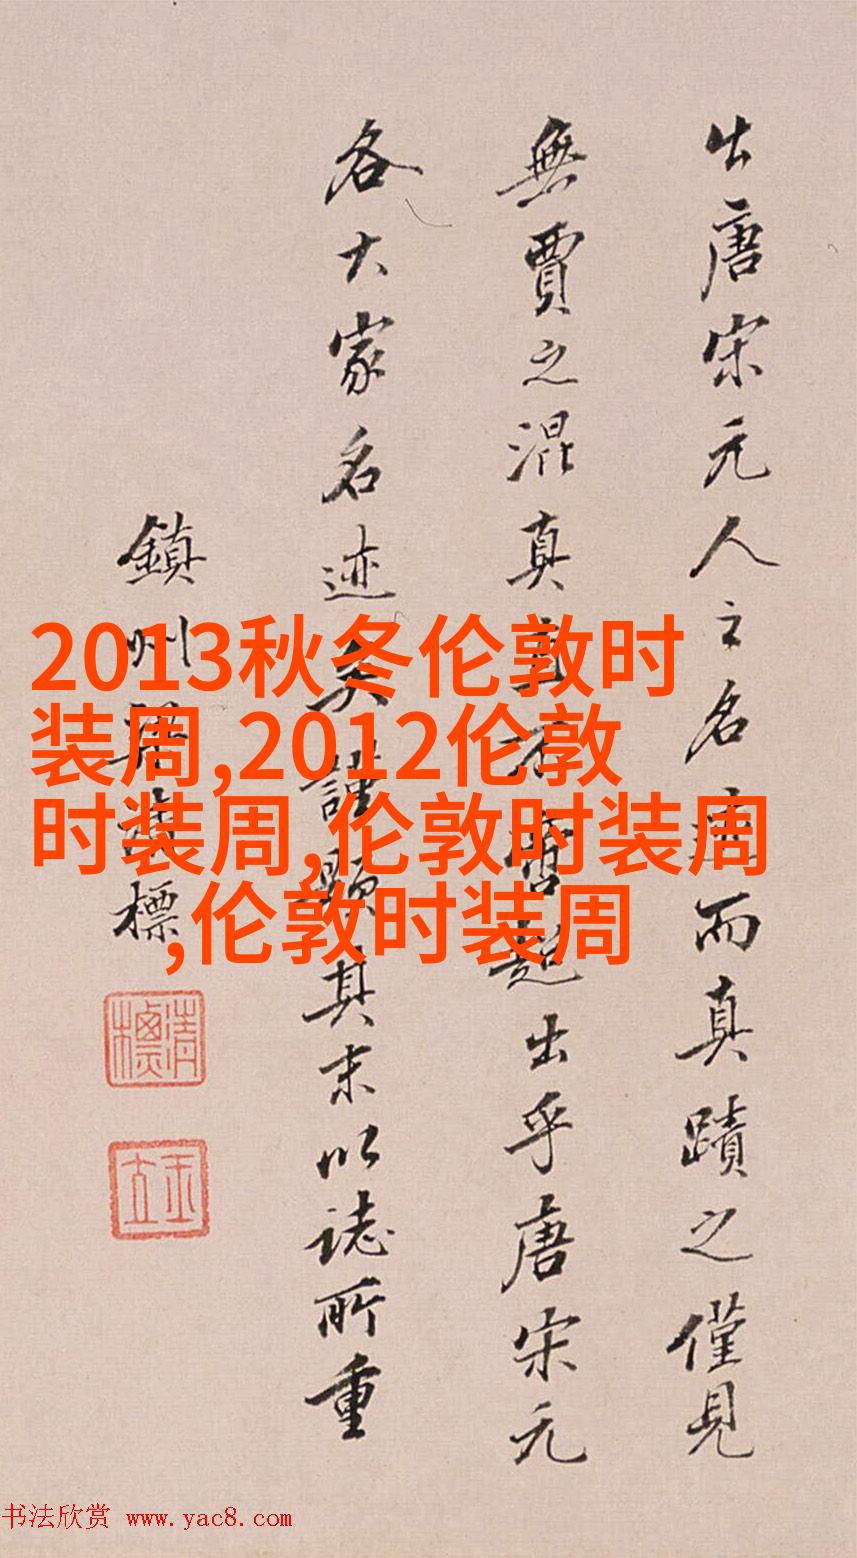 出唐宋元人之名迹而真蹟之僅見
無賈之混真 不 超出乎唐宋元
各大家名迹矣謹題其末以誌所重
鎮州梁清標
清標
玉立
2013秋冬伦敦时
装周,2012伦敦
时装周,伦敦时装周
,伦敦时装周
书法欣赏 www.yac8.com